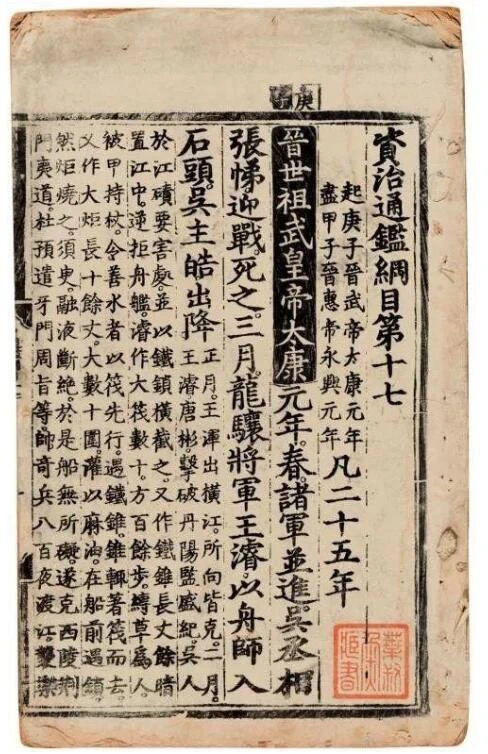 庚子
資治通鑑綱目第十七
起庚子晉武帝太康元年
盡甲子晉惠帝永興元年
凡二十五年
晉世祖武皇帝太康元年。春。諸軍並進。吳丞相
張悌迎戰。死之。三月。龍驤將軍王濬。以舟師入
石頭。吳主皓出降
正月。王渾出橫江。所向皆克。二月。
王濬唐彬擊破丹陽監盛紀。吳人
於江磧要害處。並以鐵鎖橫截之。又作鐵錐長丈餘暗
置江中。逆拒舟艦。濬作大筏數十。方百餘步。縛草爲人。
彼甲持杖。令善水者以筏先行。遇鐵錐。錐輒著筏而去。
又作大炬長十餘丈。大數十圍。灌以麻油。在船前。遇鎖。
然炬燒之。須臾。融液斷絶。於是船無所礙。遂克西陵荊
門夷道。杜預遣牙門周旨等。帥奇兵八百夜渡江。襲樂